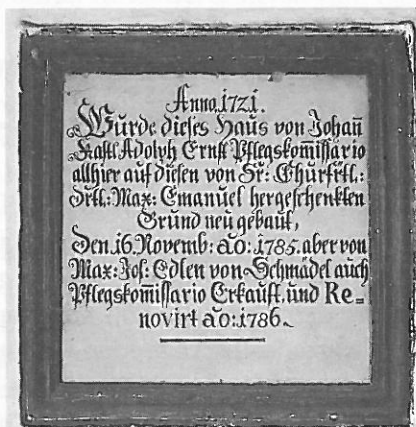 Anno 1721.
Wurde dieses Haus von Johan̄
Kastl Adolph Ernst Pflegskom̄issario
allhier auf diesen von Sr: Churfrtl:
Drtl: Max: Emanuel hergeschenkten
Grund neu gebaut,
Den 16. Novemb: ao: 1785. aber von
Max: Jos: Edlen von Schmädel auch
Pflegskom̄issario Erkauft. und Re=
novirt ao: 1786.